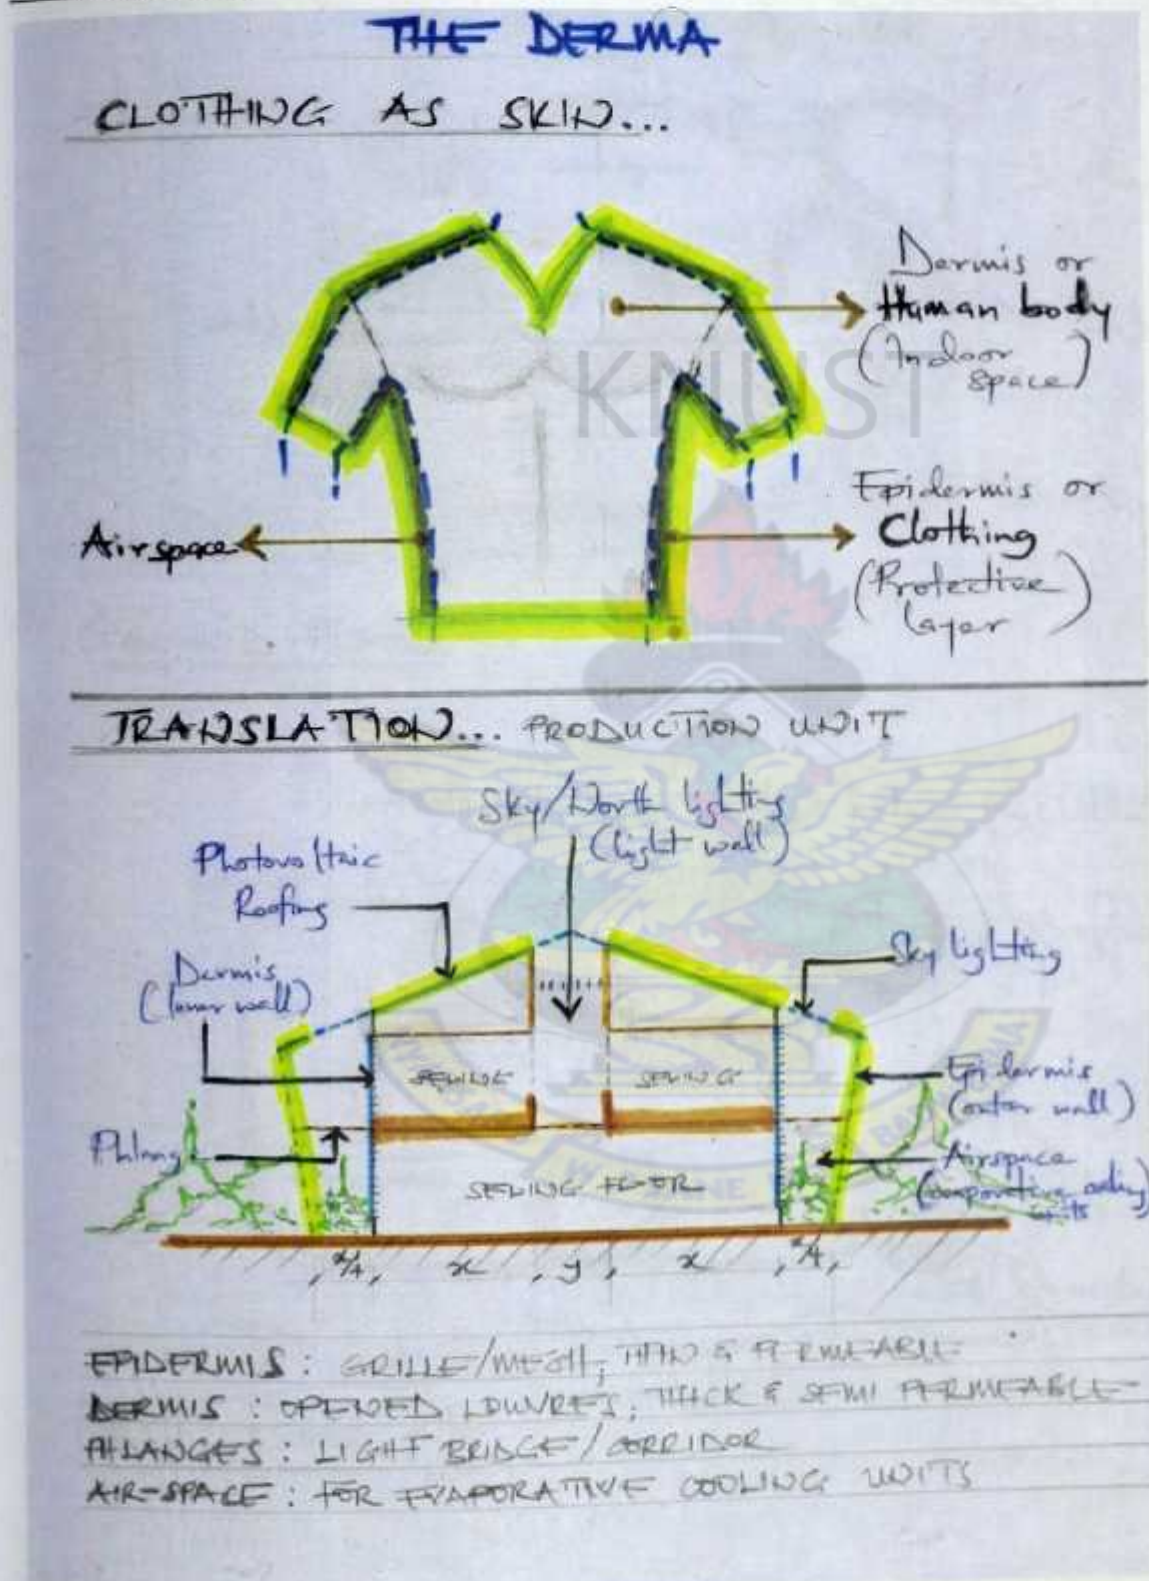 THE DERMA
CLOTHING AS SKIN...
Dermis or
Human body
(Indoor
space)
KNUST
Airspace
Epidermis or
Clothing
(Protective
layer)
TRANSLATION... PRODUCTION UNIT
Sky/North lighting
(light wall)
Photovoltaic
Roofing
Sky lighting
Dermis
(inner wall)
SEWING
SEWING
Epidermis
(outer wall)
Phlange
Airspace
(evaporative cooling
units
SEWING FLOOR
x/4, x, y, x, x/4,
EPIDERMIS: GRILLE/MESH; THIN & PERMEABLE
DERMIS: OPENED LOUVRES; THICK & SEMI PERMEABLE
PHLANGES: LIGHT BRIDGE/CORRIDOR
AIR-SPACE: FOR EVAPORATIVE COOLING UNITS